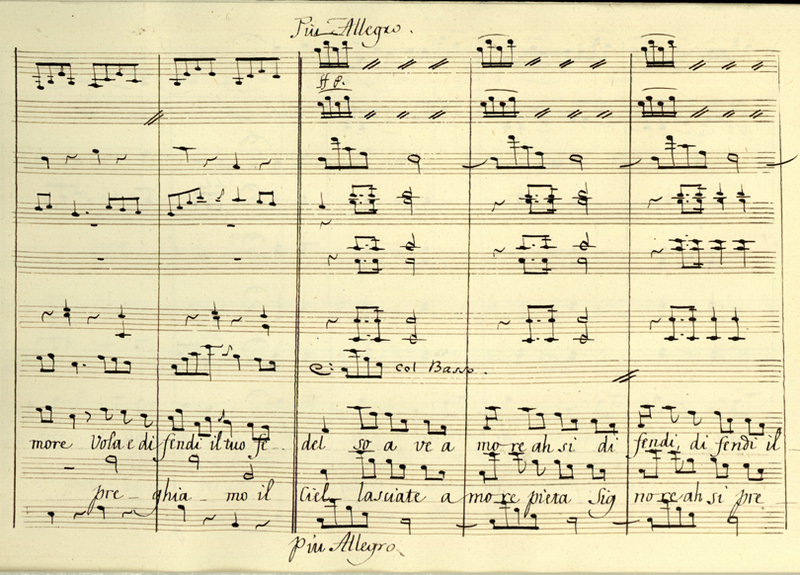 Più Allegro.
ff p.
col Basso.
more vola e di fendi il tuo fe del so a ve a mo re ah si di fendi, di fendi il
pre ghia mo il Ciel lasciate a mo re pieta Sig no re ah si pre
Più Allegro.